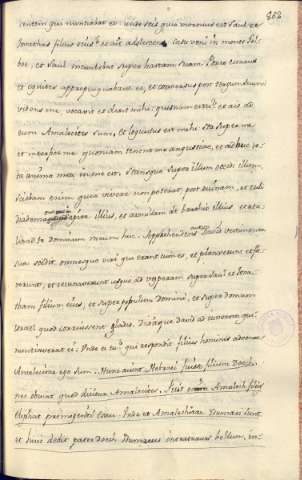 202
iuvenem qui nuntiabat ei: unde scis quia mortuus est Saul, et
Jonathas filius eius? et ait adolescens: casu veni in monte Gel-
boe, et Saul incumbebat super hastam suam. Porro currus
et equites appropinquabant ei, et conversus post tergum suum
vidensq me vocavit et dixit mihi: quisnam es tu? et ait ad
eum Amalecites sum, et loquutus est mihi. Sta super me
et interfice me quoniam tenent me angustiae, et adhuc to-
ta anima mea in me est. Stansque super illum occidi illum.
Sciebam enim quia vivere non poterat, post ruinam, et tuli
diadema capite illius, et armillam de brachio illius, et at-
tuli ad te dominum meum huc. Apprehendens autem David vestimenta
sua scidit, omnesque viri qui erant cum eo, et planxerunt et fle-
verunt, et ieiunaverunt usque ad vesperam super Saul et Iona-
tham filium eius, et super populum Domini, et super domum
Israel quod corruissent gladio. Dixitque David ad iuvenem qui
nuntiaverat ei: Unde es tu? qui respondit filius hominis advenae
Amalecitae ego sum. Hunc aiunt Hebraei fuisse filium Doech,
nec obviat quod dicatur Amalecites. Fuit enim Amalech filius
Eliphaz primogeniti Esau. Unde et Amalechitae Idumaei sunt,
et hinc dedit pater Doech Idumaeus